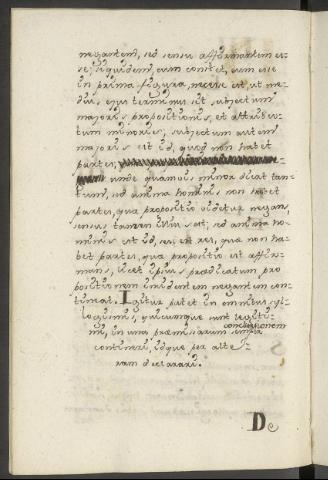 negantem, sed sensu affirmantem es-
se; siquidem, cum constet, eum esse
in prima figura, necesse est, ut me-
dius, ejus terminus sit subjectum
majoris propositionis, et attribu-
tum minoris, subjectum autem
majoris est id, quod non habet
partes;
unde quamvis minor dicat tan-
tum, sed anima hominis non habet
partes, qua propositio videtur negans,
sensus tamen illius est, sed anima ho-
minis est id, seu est res, qua non ha-
bet partes, qua propositio est affir-
mans, licet ipsius praedicatum pro
positionem incidentem negantem con-
tineat. Igitur patet in omnibus syl-
logismis, quicumque sunt legiti-
mi, in una praemissarum conclusionem
contineri, idque per alte-
ram declarari.
De